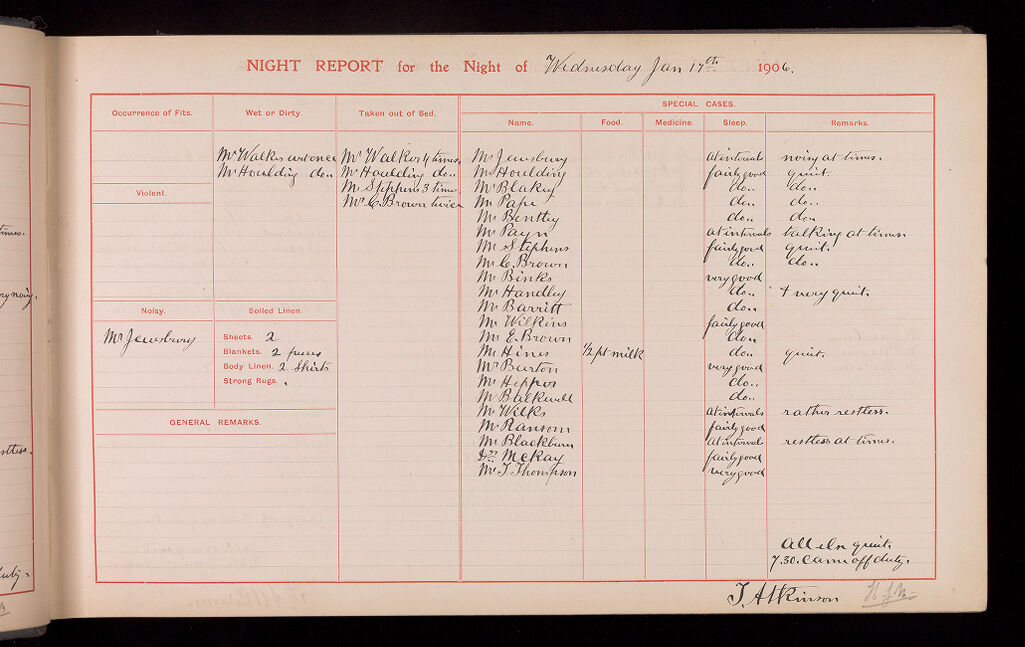 NIGHT REPORT for the Night of Wednesday Jan 17th 1906.
SPECIAL CASES.
Occurrence of Fits. Wet or Dirty. Taken out of Bed. Name. Food. Medicine. Sleep. Remarks.
Mr Walker wet once Mr Walker 4 times. Mr Jewsbury at interval noisy at times.
Mr Houlding do.. Mr Houlding do.. Mr Houlding fairly good quiet.
Violent. Mr Stephens 3 times Mr Blakey do.. do..
Mr C. Brown twice Mr Pape do.. do..
Mr Bentley do.. do..
Mr Payn at intervals talking at times.
Mr Stephens fairly good quiet.
Mr C. Brown do.. do..
Mr Binks very good
Mr Handley do.. + very quiet.
Mr Barritt do..
Noisy. Soiled Linen. Mr Wilkins fairly good
Mr Jewsbury Sheets. 2 Mr E. Brown do..
Blankets. 2 pieces Mr Hines 1/2 pt milk do.. quiet.
Body Linen. 2 Shirts Mr Burton very good
Strong Rugs. Mr Heppor do..
Mr Balkwell do..
GENERAL REMARKS. Mr Wilks at intervals rather restless.
Mr Ransom fairly good
Mr Blackburn at interval restless at times.
Dr McKay fairly good
Mr T. Thompson very good
All else quiet.
7.30. Came off duty.
T. Atkinson
times.
duty.